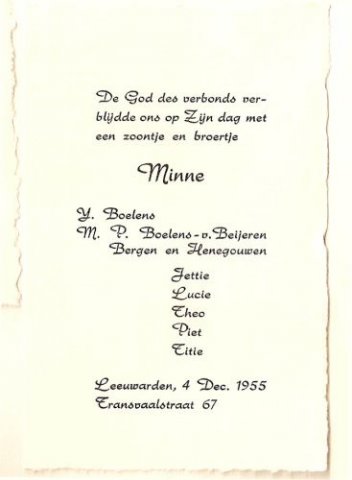 De God des verbonds ver-
blijdde ons op Zijn dag met
een zoontje en broertje
Minne
Y. Boelens
M. P. Boelens-v. Beijeren
Bergen en Henegouwen
Jettie
Lucie
Theo
Piet
Titie
Leeuwarden, 4 Dec. 1955
Transvaalstraat 67